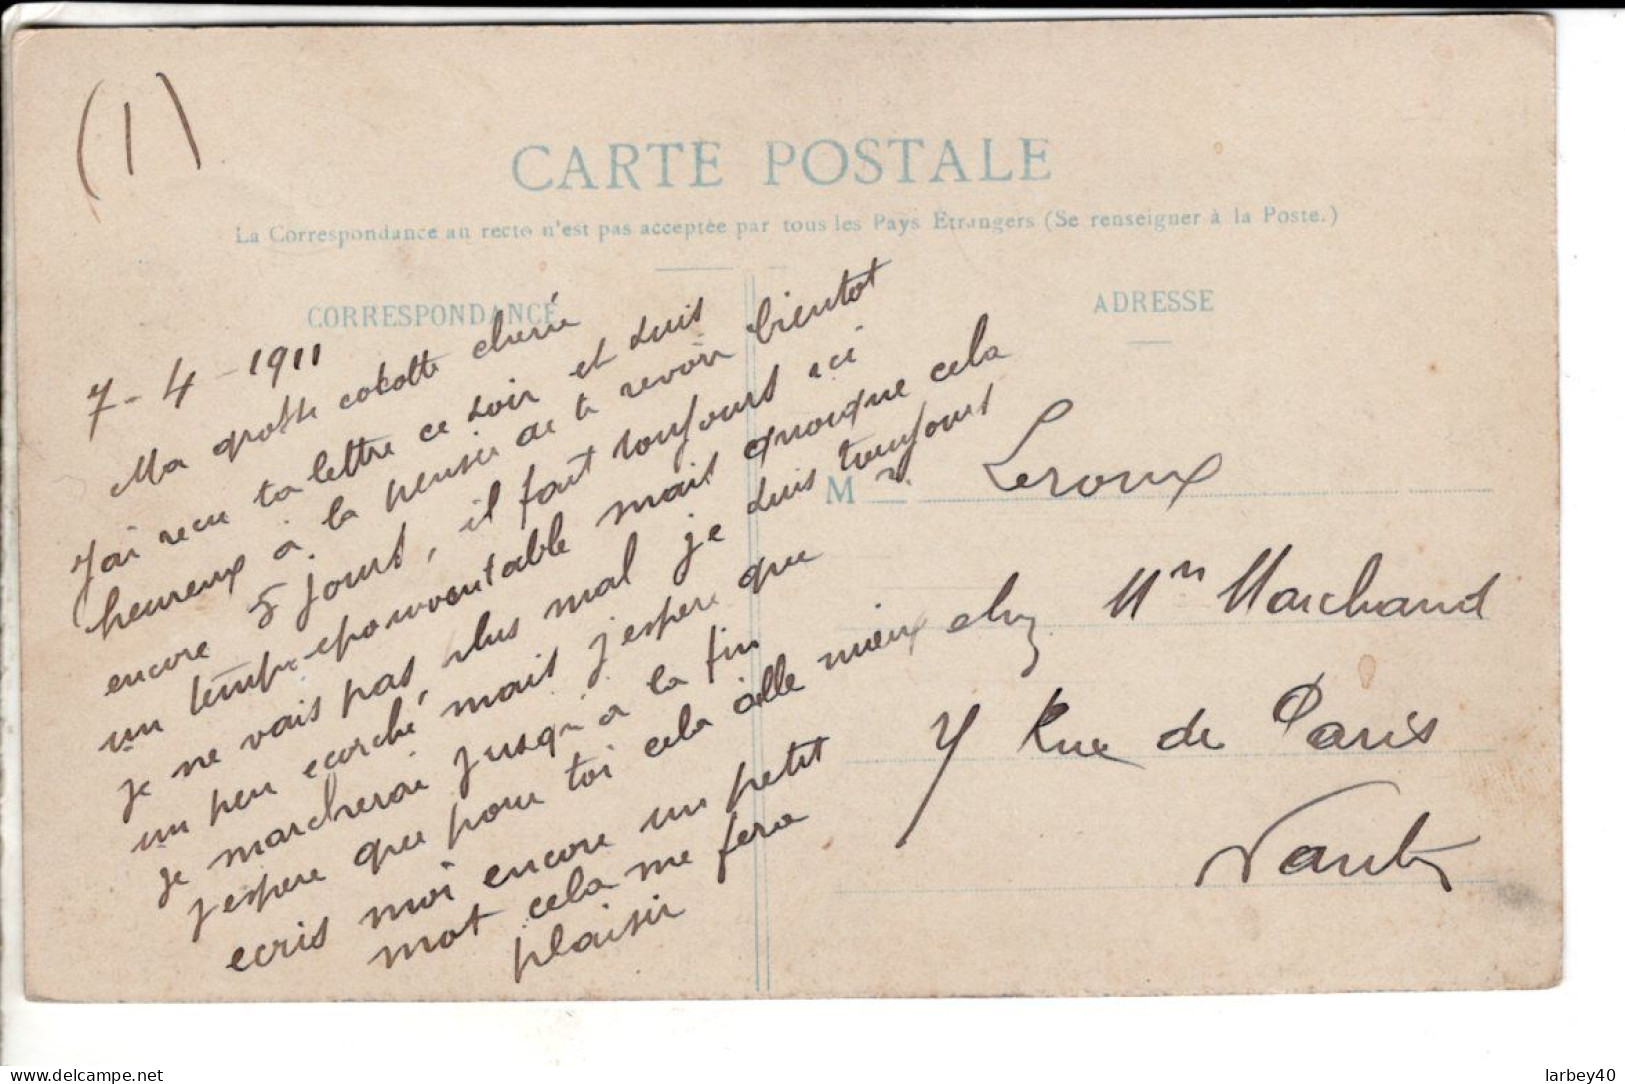 (1)
CARTE POSTALE
La Correspondance au recto n'est pas acceptée par tous les Pays Etrangers (Se renseigner à la Poste.)
CORRESPONDANCE
7-4-1911
Ma grosse cokotte cherie
J'ai recu ta lettre ce soir et suis
heureux à la pensée de te revoir bientot
encore 5 jours, il fait toujours ici
un temps epouvventable mais quoique cela
je ne vais pas plus mal je suis toujours
un peu ecorché, mais j'espere que
je marcherai jusqu'a la fin
j'espere que pour toi cela aille mieux
ecris moi encore un petit
mot cela me fera
plaisir
ADRESSE
M Leroux
chez Mr Marchand
7 Rue de Paris
Nantes
larbey40